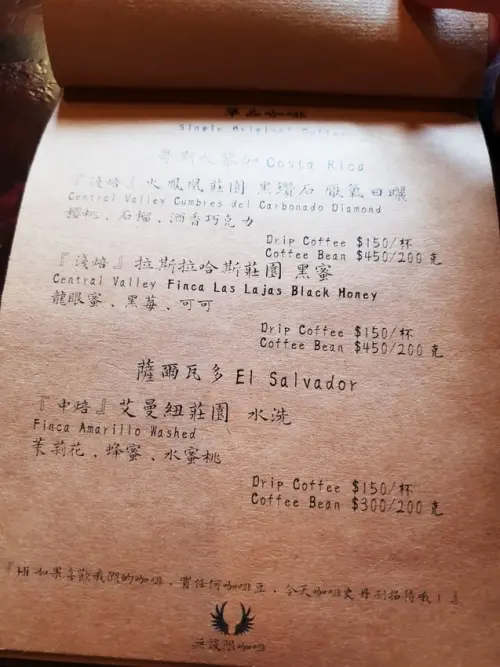 單品咖啡
Single Origin Coffee
哥斯大黎加 Costa Rica
『淺焙』火鳳凰莊園 黑鑽石 厭氧日曬
Central Valley Cumbres del Carbonado Diamond
櫻桃、石榴、酒香巧克力
Drip Coffee $150/杯
Coffee Bean $450/200 克
『淺焙』拉斯拉哈斯莊園 黑蜜
Central Valley Finca Las Lajas Black Honey
龍眼蜜、黑莓、可可
Drip Coffee $150/杯
Coffee Bean $450/200 克
薩爾瓦多 El Salvador
『中焙』艾曼紐莊園 水洗
Finca Amarillo Washed
茉莉花、蜂蜜、水蜜桃
Drip Coffee $150/杯
Coffee Bean $300/200 克
『Hi 如果喜歡我們的咖啡，買任何咖啡豆，今天咖啡史丹利招待哦！』
無設限咖啡